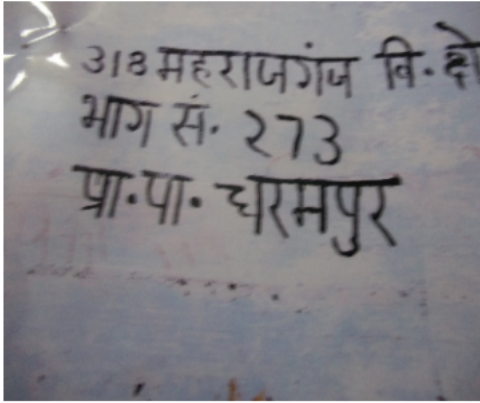 318 महराजगंज वि. क्षे
भाग सं. 273
प्रा.पा. धरमपुर